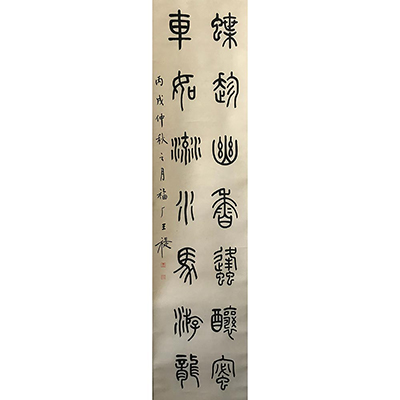 蝶趁幽香蠭釀蜜
車如流水馬游龍
丙戌仲秋之月福厂王禔